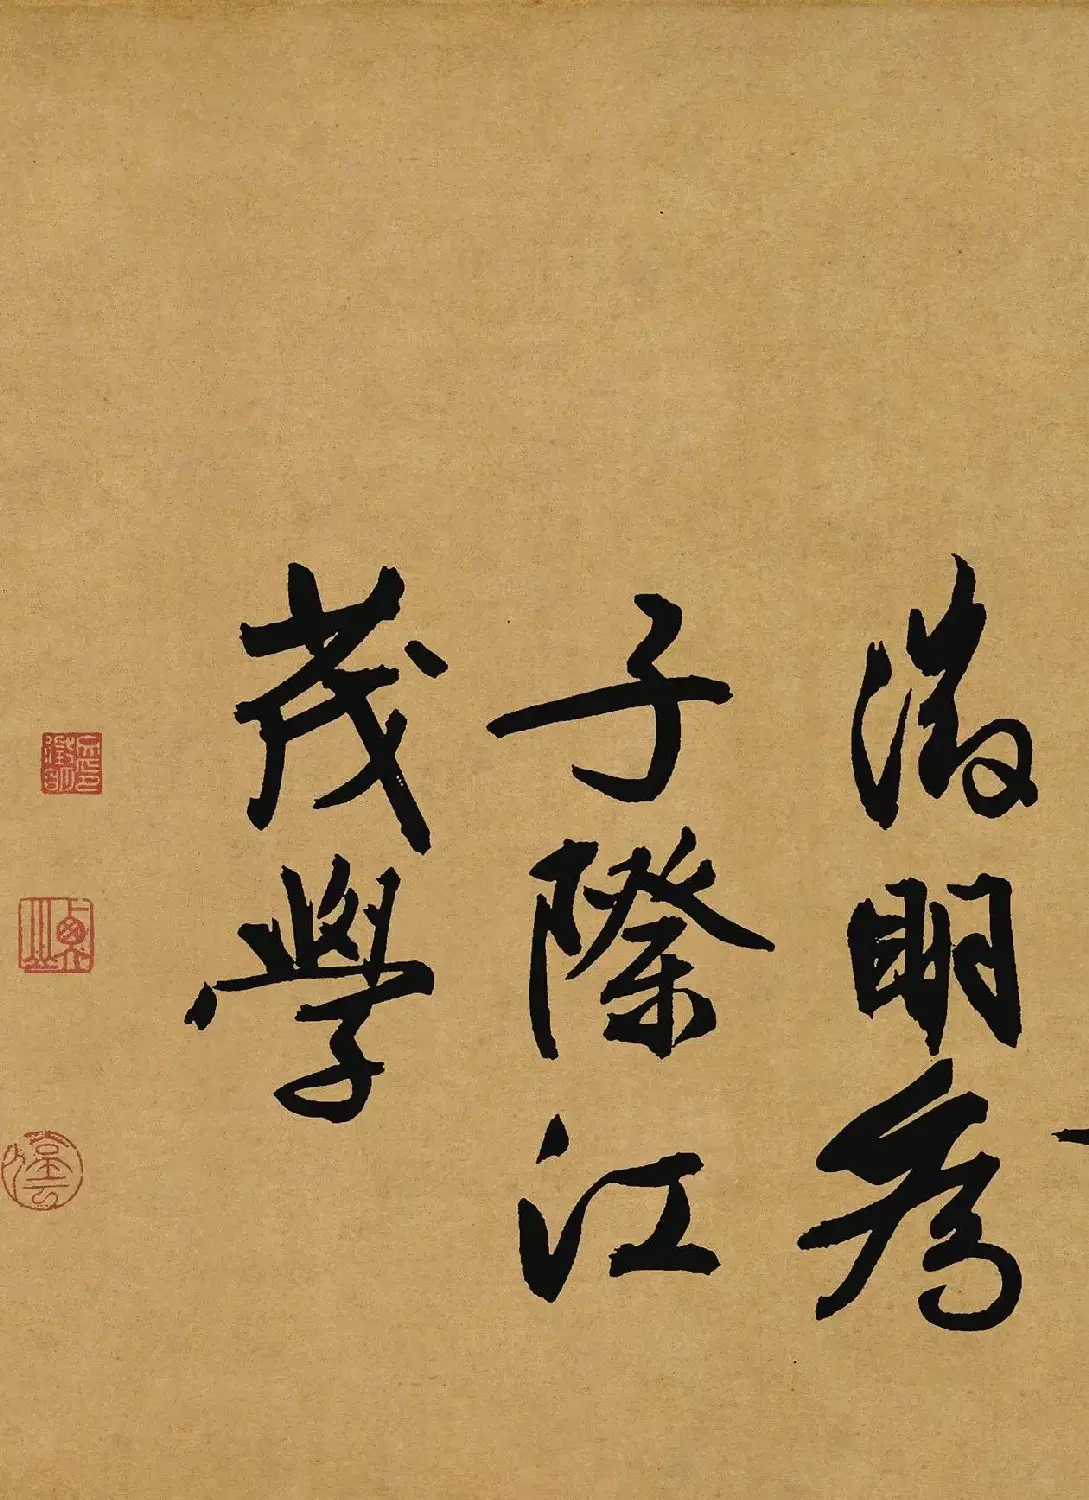 徵明為
子際江
茂學